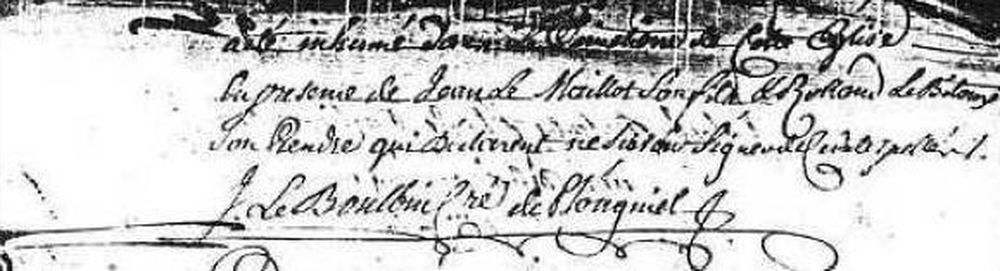 a été inhumé dans le Cimetiere de cette Eglise
En presence de Jean Le Maillot son fils & Rolland Le
son Gendre qui Declarent ne sçavoir signer de ce interpellés /.
J. Le Boulluic Cré de Plouguiel